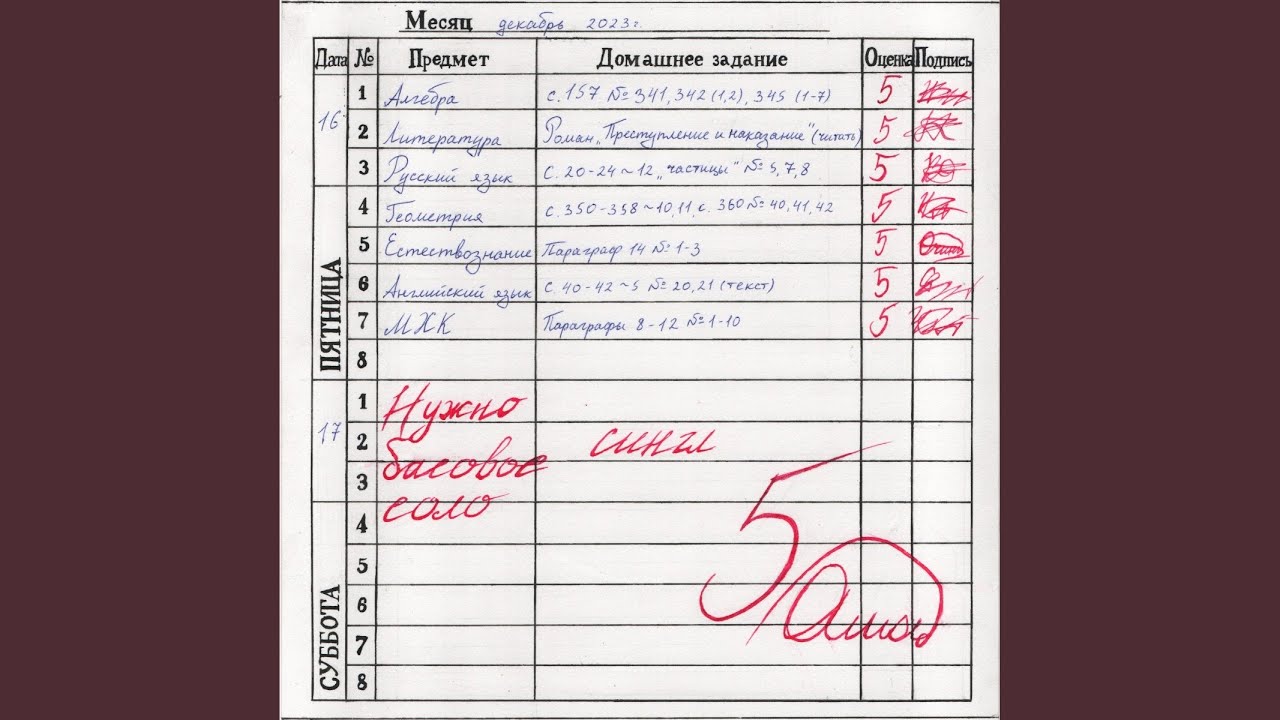 Месяц декабрь 2023г.
Дата № Предмет Домашнее задание Оценка Подпись
16 1 Алгебра с. 157 № 341, 342 (1,2), 345 (1-7) 5
2 Литература Роман „Преступление и наказание" (читать) 5
3 Русский язык с. 20-24 ~ 12 „частицы" № 5,7,8 5
ПЯТНИЦА
4 Геометрия с. 350-358 ~ 10,11, с. 360 № 40,41,42 5
5 Естествознание Параграф 14 № 1-3 5
6 Английский язык с. 40-42 ~ 5 № 20,21 (текст) 5
7 МХК Параграфы 8-12 № 1-10 5
8
17 1 Нужно
2 басовое сингл
3 соло
СУББОТА
4
5 5
6
7
8